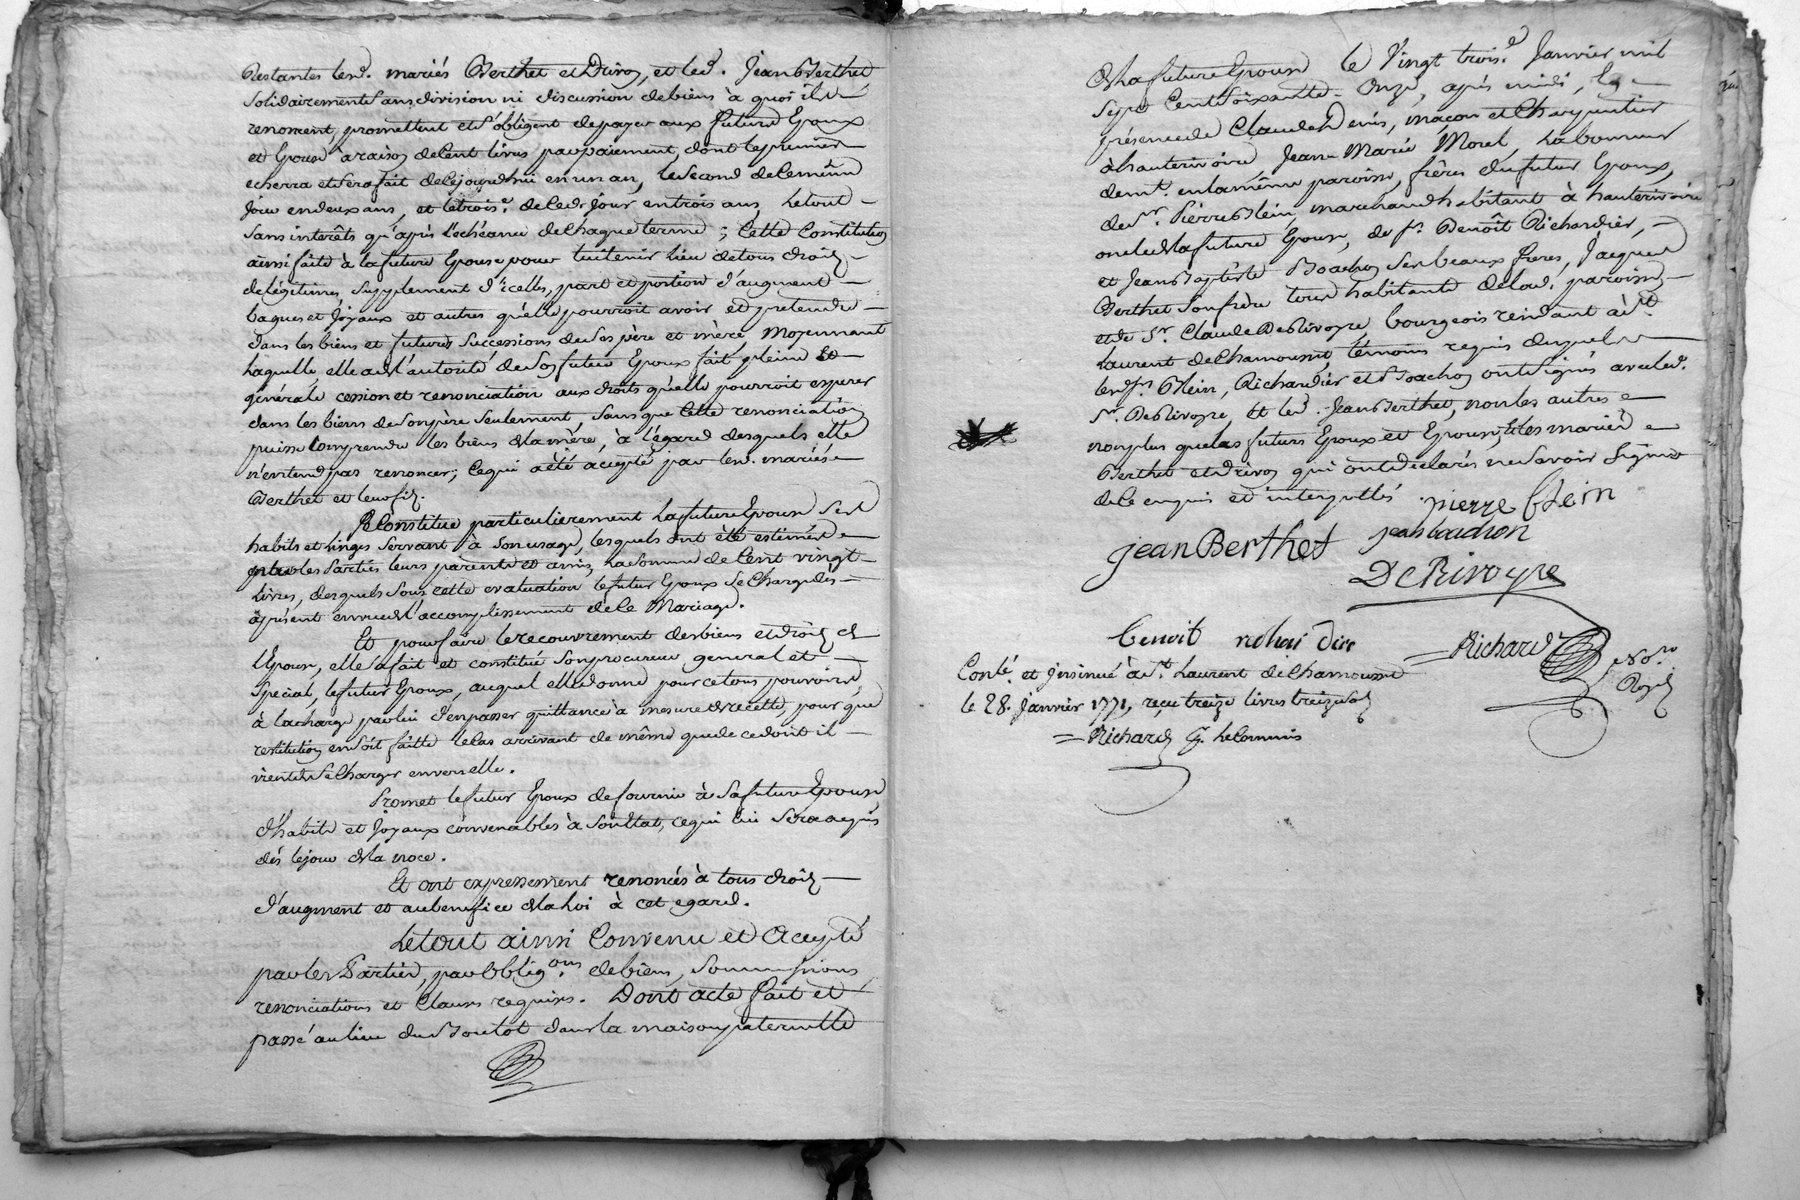 Restantes led. mariés Berthet et Drivon, et led. Jean Berthet
Solidairement Sans division ni discussion de biens à quoi ils
renoncent, promettent et s'obligent de payer aux futurs Epoux
et Epouse à raison de Cent livres par paiement, dont le premier
echerra et Sera fait de Cejourdhui en un an, le Second de Ce même
jour en deux ans, et le trois.e de Ced. jour en trois ans, Le tout
Sans interêts qu'après l'echéance de Chaque terme ; Cette Constitution
ainsi faite à la future Epouse pour lui tenir lieu de tous droits
de légitimes, Supplement d'icelles, part et portion d'augment
bagues et Joyaux et autres qu'elle pourroit avoir et pretendre
dans les biens et futures Successions de Ses père et mère, Moyennant
Laquelle elle de l'autorité de Son futur Epoux fait pleine et
générale cession et renonciation aux droits qu'elle pourroit esperer
dans les biens de Son père Seulement, Sans que Cette renonciation
puisse Comprendre les biens de la mère, à l'égard desquels elle
n'entend pas renoncer ; Ce qui a été accepté par led. mariés
Berthet et leur fils.
Se Constitue particulierement La future Epouse Ses
habits et linges Servant à Son usage, lesquels ont été estimés
par les Parties leurs parents et amis, La Somme de Cent vingt
livres, desquels Sous cette evaluation le futur Epoux Se Charge dès
àprésent en vue de l'accomplissement de Ce Mariage.
Et pour faire le recouvrement des biens et droits de
l'Epouse, elle a fait et constitué Son procureur general et
Special, le futur Epoux, auquel elle donne pour ce tous pouvoirs,
à la charge par lui d'en passer quittance à mesure de recette, pour que
restitution en Soit faitte le Cas arrivant de même que de ce dont il
vient de Se Charger envers elle.
Promet le futur Epoux de fournir à Sa future Epouse
d'habits et Joyaux convenables à Son Etat, ce qui lui Sera acquis
dès le jour de la noce.
Et ont expressement renoncés à tous droits
d'augment et au benefice de la Loi à cet egard.
Le tout ainsi Convenu et Accepté
par les Parties, par Oblig.ons de biens, Soumissions
renonciations et Clauses requises. Dont acte Fait et
passé au lieu du Boulot dans la maison paternelle
de la future Epouse le Vingt trois.e Janvier mil
Sept Cent Soixante-Onze, après midi, En
présence de Claude Denis, maçon et Charpentier
à hauterivoire Jean-Marie Morel, Laboureur
dem.t en la même paroisse, frères du futur Epoux,
de S.r Pierre Blein, marchand habitant à hauterivoire
oncle de la future Epouse, de S.r Benoît Richardier,
et Jean Baptiste Boachon Ses beaux frères, Jacques
Berthet Son frère tous habitants de lad. paroisse
et de S.r Claude DeRivoyre bourgeois résidant à S.t
Laurent de Chamousset, témoins requis desquels
lesd. S.rs Blein, Richardier et Boachon ont Signés avec led.
S.r DeRivoyre, et led. Jean Berthet, non les autres
non plus que les futurs Epoux et Epouse, et les mariés
Berthet et Drivon qui ont déclarés ne Savoir Signer
de Ce enquis et interpellés. pierre blein
jean Berthet jean boachon
DeRivoyre
benoit richardier
Richard No.re Royal
Con.lé et insinué à S.t Laurent de Chamousset
le 28. janvier 1771, reçu treize livres treize Sols
Richard p.r le Commis